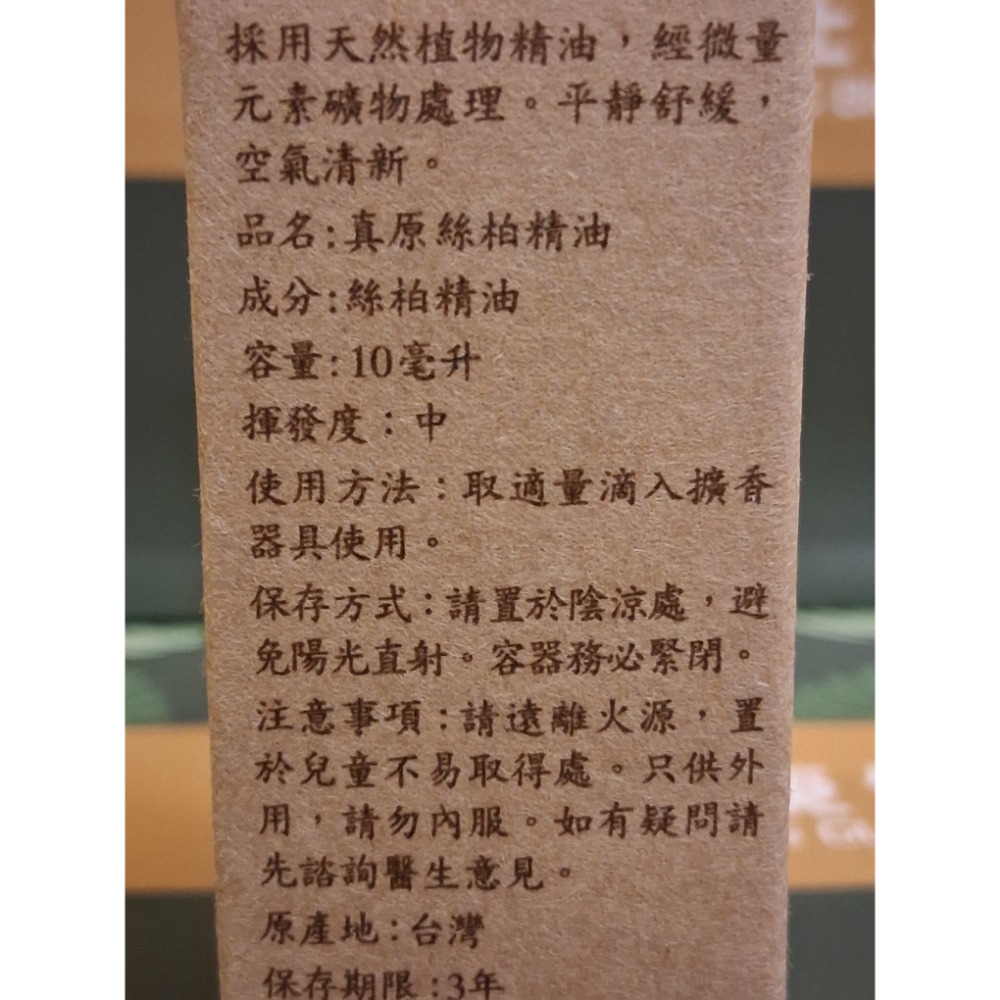 採用天然植物精油，經微量
元素礦物處理。平靜舒緩，
空氣清新。
品名:真原絲柏精油
成分:絲柏精油
容量:10毫升
揮發度：中
使用方法：取適量滴入擴香
器具使用。
保存方式：請置於陰涼處，避
免陽光直射。容器務必緊閉。
注意事項：請遠離火源，置
於兒童不易取得處。只供外
用，請勿內服。如有疑問請
先諮詢醫生意見。
原產地：台灣
保存期限：3年